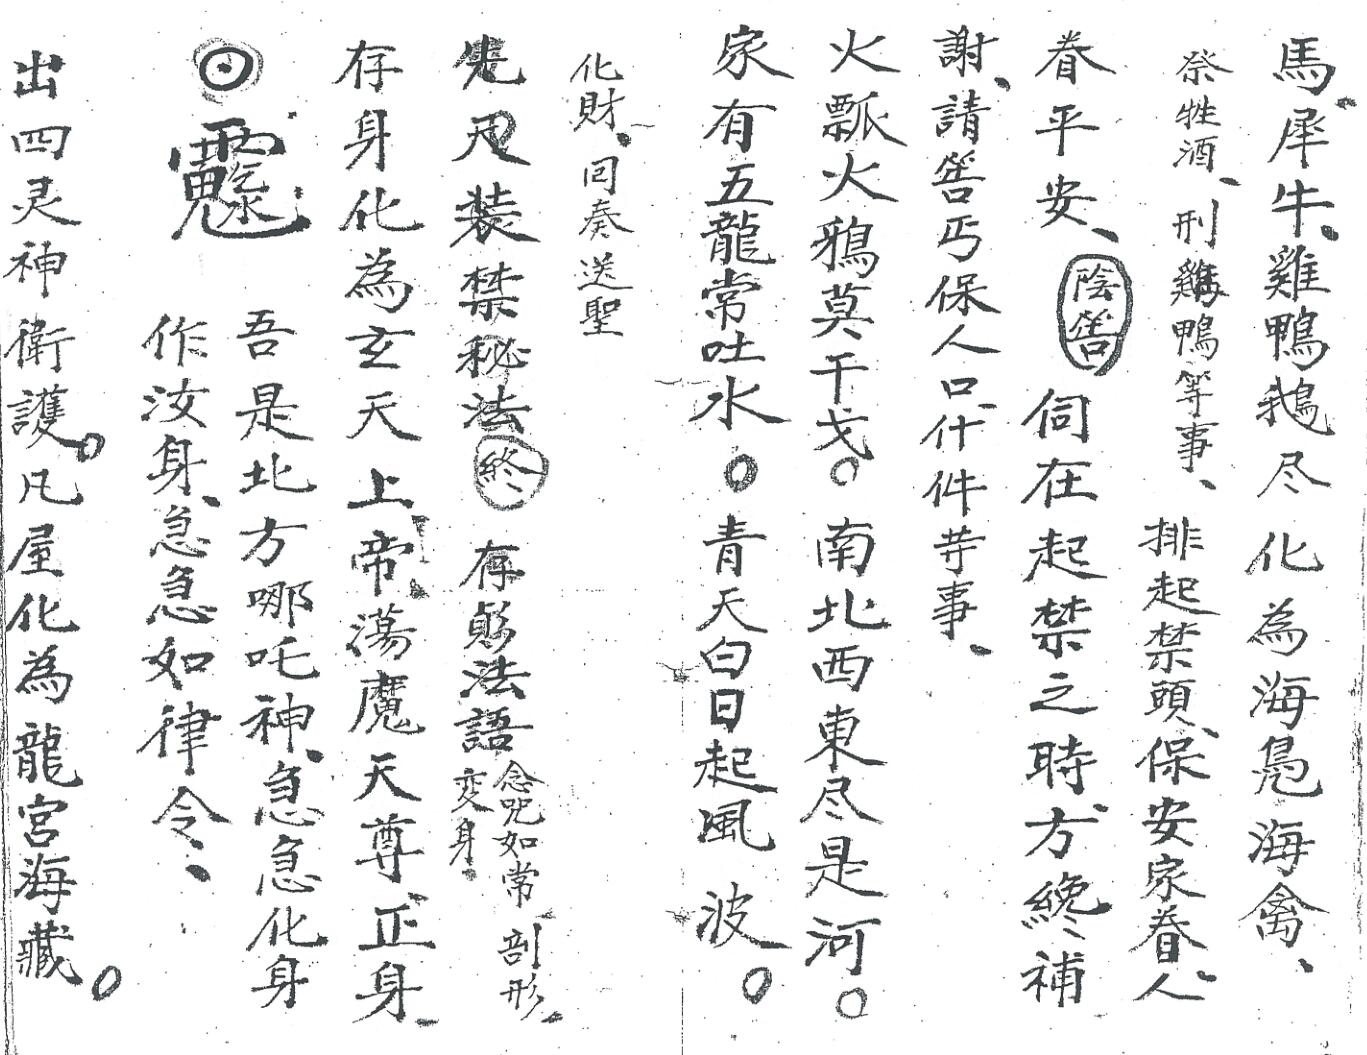 馬犀牛、雞鴨鵝尽化為海鳧海禽、
祭牲酒、刑雞鴨等事、
排起禁頭、保安家眷人、
眷平安、陰筶 伺在起禁之時、方纔補
謝、請筶丐保人口什件䓁事、
火瓢火鴉莫干戈。南北西東尽是河。
家有五龍常吐水。青天白日起風波。
化財、同奏送聖
先尺装禁秘法終 存師法語 念咒如常 剖形、
変身、
存身化為玄天上帝蕩魔天尊、正身、
吾是北方哪吒神、急急化身
作汝身、急急如律令、
出四灵神衛護。凡屋化為龍宮海藏。